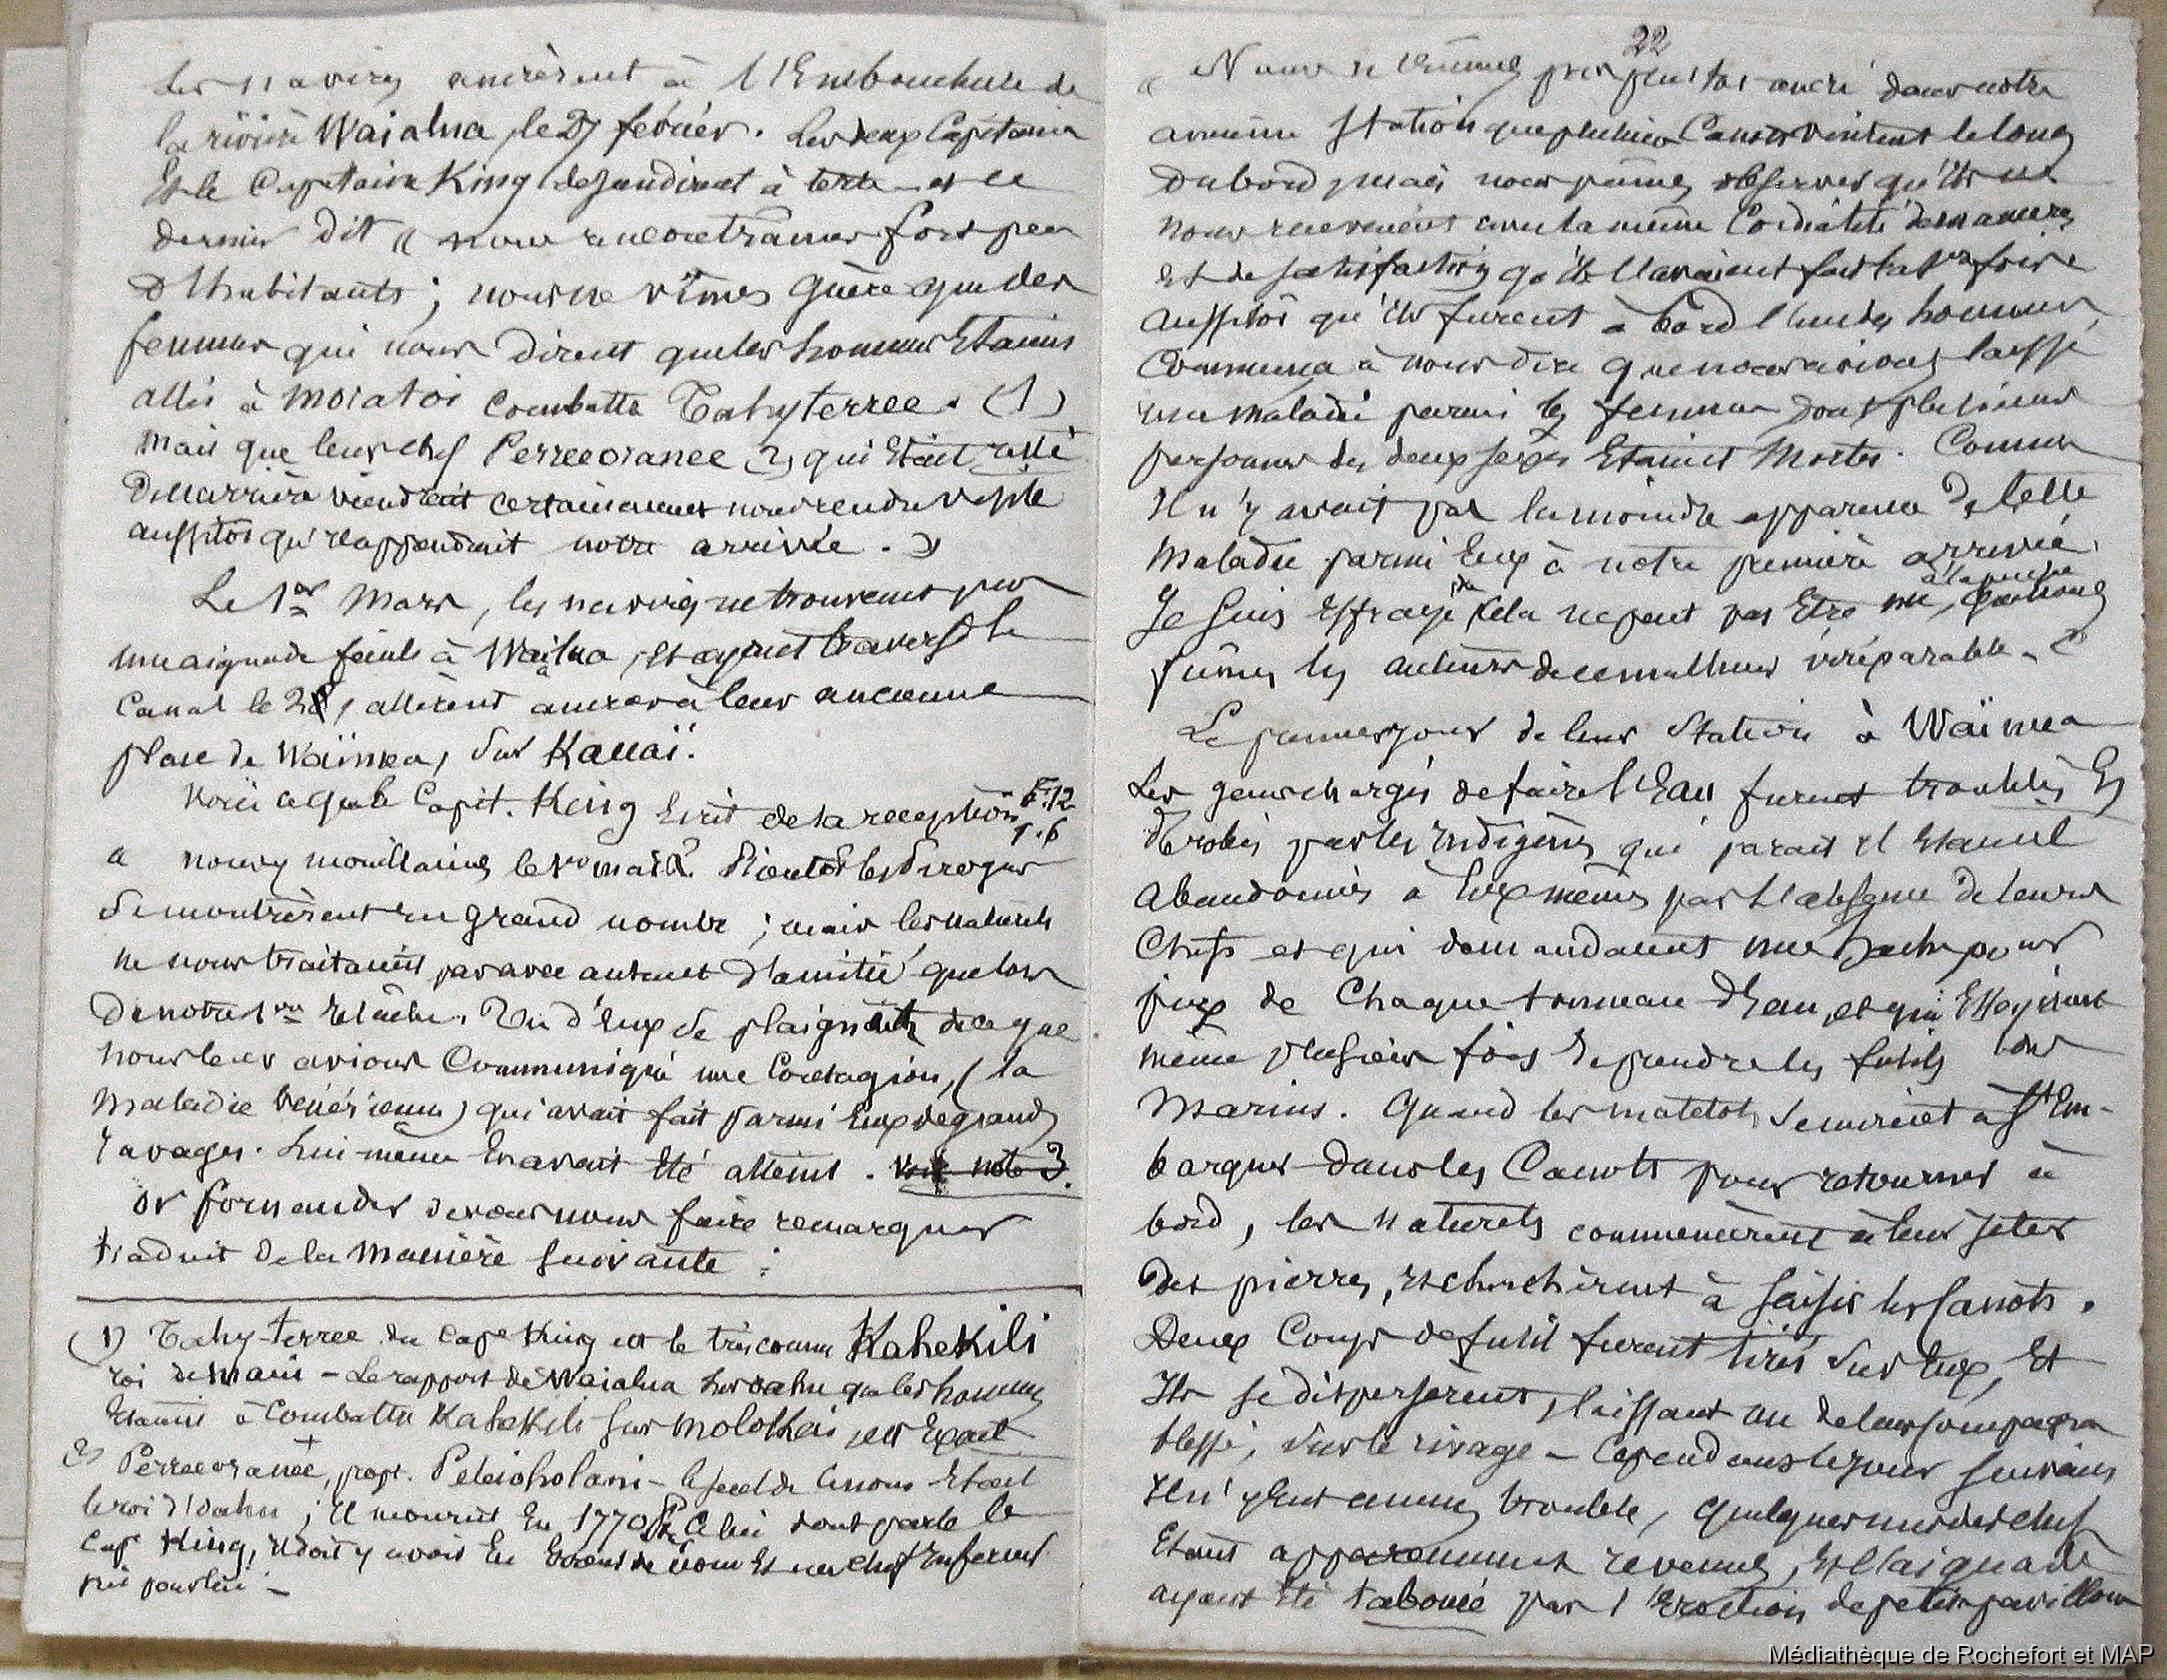 Les navires ancrèrent à l'Embouchure de
la rivière Waialua, le 27 février. Les deux Capitaines
Et le Capitaine King descendirent à terre et ce
dernier dit « nous rencontrâmes fort peu
d'habitants ; nous ne vîmes guère que des
femmes qui nous dirent que les hommes Etaient
allés à Moratoi combattre Tahyterree. (1)
Mais que leur chef Perreeoranee (2) qui Etait resté
En arrière viendrait certainement nous rendre visite
aussitôt qu'il apprendrait notre arrivée. »
Le 1er Mars, les navires ne trouvèrent pas
une aiguade facile à Waialua, et ayant traversé le
Canal le 28, allèrent ancrer à leur ancienne
place de Waïmea, sur Kauaï.
Voici ce que le Capit. King Ecrit de la reception F.12
T.6
« nous y mouillames le 1er mars. Bientôt les Pirogues
Se montrèrent en grand nombre ; mais les naturels
ne nous traitaient pas avec autant d'amitié que lors
De notre 1ère relâche. Un d'Eux se plaignait de ce que
nous leur avions Communiqué une Contagion, (la
Maladie vénérienne) qui avait fait parmi Eux de grands
ravages. Lui-même En avait Eté atteint. Voir note 3.
Or Fornander devons nous faire remarquer
traduit de la Manière Suivante :
(1) Tahy-terree du Cape King est le très connu Kahekili
roi de Maui - Le rapport de Waialua sur oahu que les hommes
Etaient à Combattre Kahekili sur Molokai est Exact
(2) Perreeoranee, prop. Peleioholani - le seul de ce nom Etait
le roi d'Oahu ; Il mourut En 1770. Celui dont parle le
Cap King, il doit y avoir Eu Erreur de nom Et un chef inférieur
pris pour lui -
22
« Nous ne fûmes pas plus tôt ancré dans notre
ancienne station que plusieurs Canots vinrent le long
Du bord, mais nous pûmes observer qu'ils ne
nous recevaient avec la même Cordialité de manières
Et de satisfaction qu'ils l'avaient fait la 1ère fois :
Aussitôt qu'ils furent à bord l'un des hommes,
Commença à nous dire que nous avions laissé
une maladie parmi les femmes dont plusieurs
personnes des deux sexes Etaient Mortes. Comme
Il n'y avait pas la moindre apparence de telle
Maladie parmi Eux à notre première arrivée,
Je Suis Effrayé que Cela ne peut pas Etre nié, que nous
fûmes les auteurs de ce malheur irréparable. »
Le premier jour de leur Station à Waïmea
Les gens chargés de faire l'Eau furent troublés Et
dérobés par les Indigènes qui parait il Etaient
Abandonnés à Eux mêmes par l'absence de leurs
Chefs et qui demandaient une hache pour
prix de Chaque tonneau d'Eau, et qui Essayèrent
même plusieurs fois de prendre les fusils des
Marins. Quand les matelots se mirent à s'Em-
barquer dans les Canots pour retourner à
bord, les naturels commencèrent à leur jeter
Des pierres, et cherchèrent à saisir les canots.
Deux Coups de fusil furent tirés sur Eux, Et
Ils se dispersèrent, laissant un de leurs compagnons
blessé, sur le rivage - Cependant le jour suivant
Il n'y eut aucun trouble, quelques uns des chefs
Etant apparemment revenus, Et l'aiguade
ayant été tabouée par l'Erection de petits pavillons
Médiathèque de Rochefort et MAP